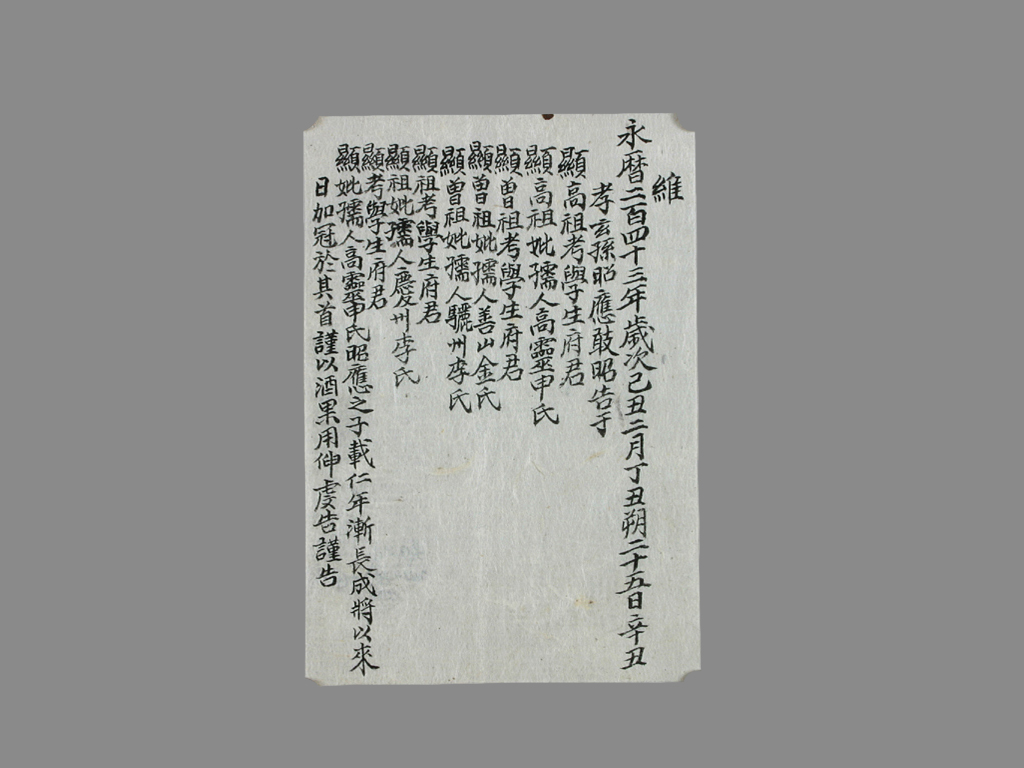 維
永曆二百四十三年歲次己丑二月丁丑朔二十五日辛丑
孝玄孫昭應敢昭告于
顯高祖考學生府君
顯高祖妣孺人高靈申氏
顯曾祖考學生府君
顯曾祖妣孺人善山金氏
顯曾祖妣孺人驪州李氏
顯祖考學生府君
顯祖妣孺人慶州李氏
顯考學生府君
顯妣孺人高靈申氏昭應之子載仁年漸長成將以來
日加冠於其首謹以酒果用伸虔告謹告